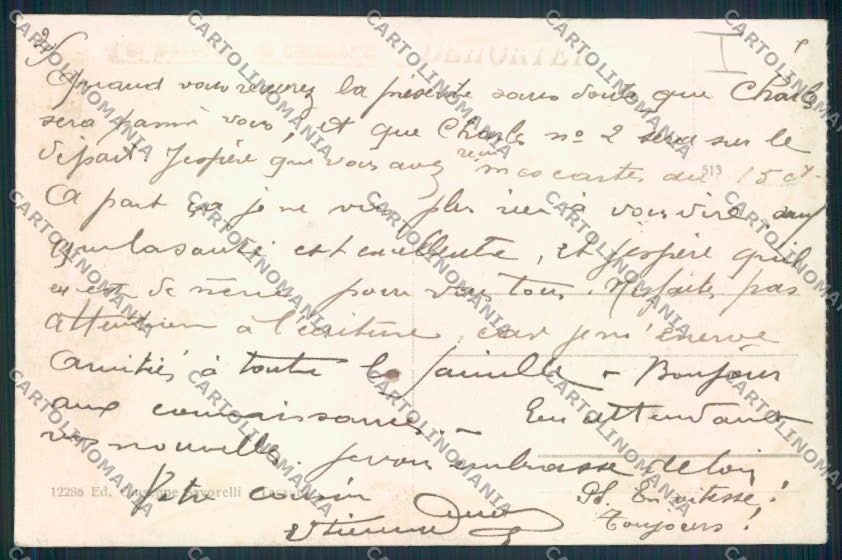 Quand vous recevrez la présente sans doute que Charles
sera parmi vous, et que Charles nº 2 sera sur le
départ J'espère que vous avez reçu mes cartes du 15 ct.
513
A part ça je ne vois plus rien à vous dire sauf
que la santé est excellente, et j'espère qu'il
en est de même pour vous tous. Ne faites pas
attention à l'écriture, car je m'énerve
Amitiés à toute la famille - Bonjour
aux connaissances. - En attendant
vos nouvelles je vous embrasse de loin
12286 Ed. Giuseppe Savorelli
Votre cousin
Etienne
PS. En vitesse!
Toujours!
CARTOLINOMANIA